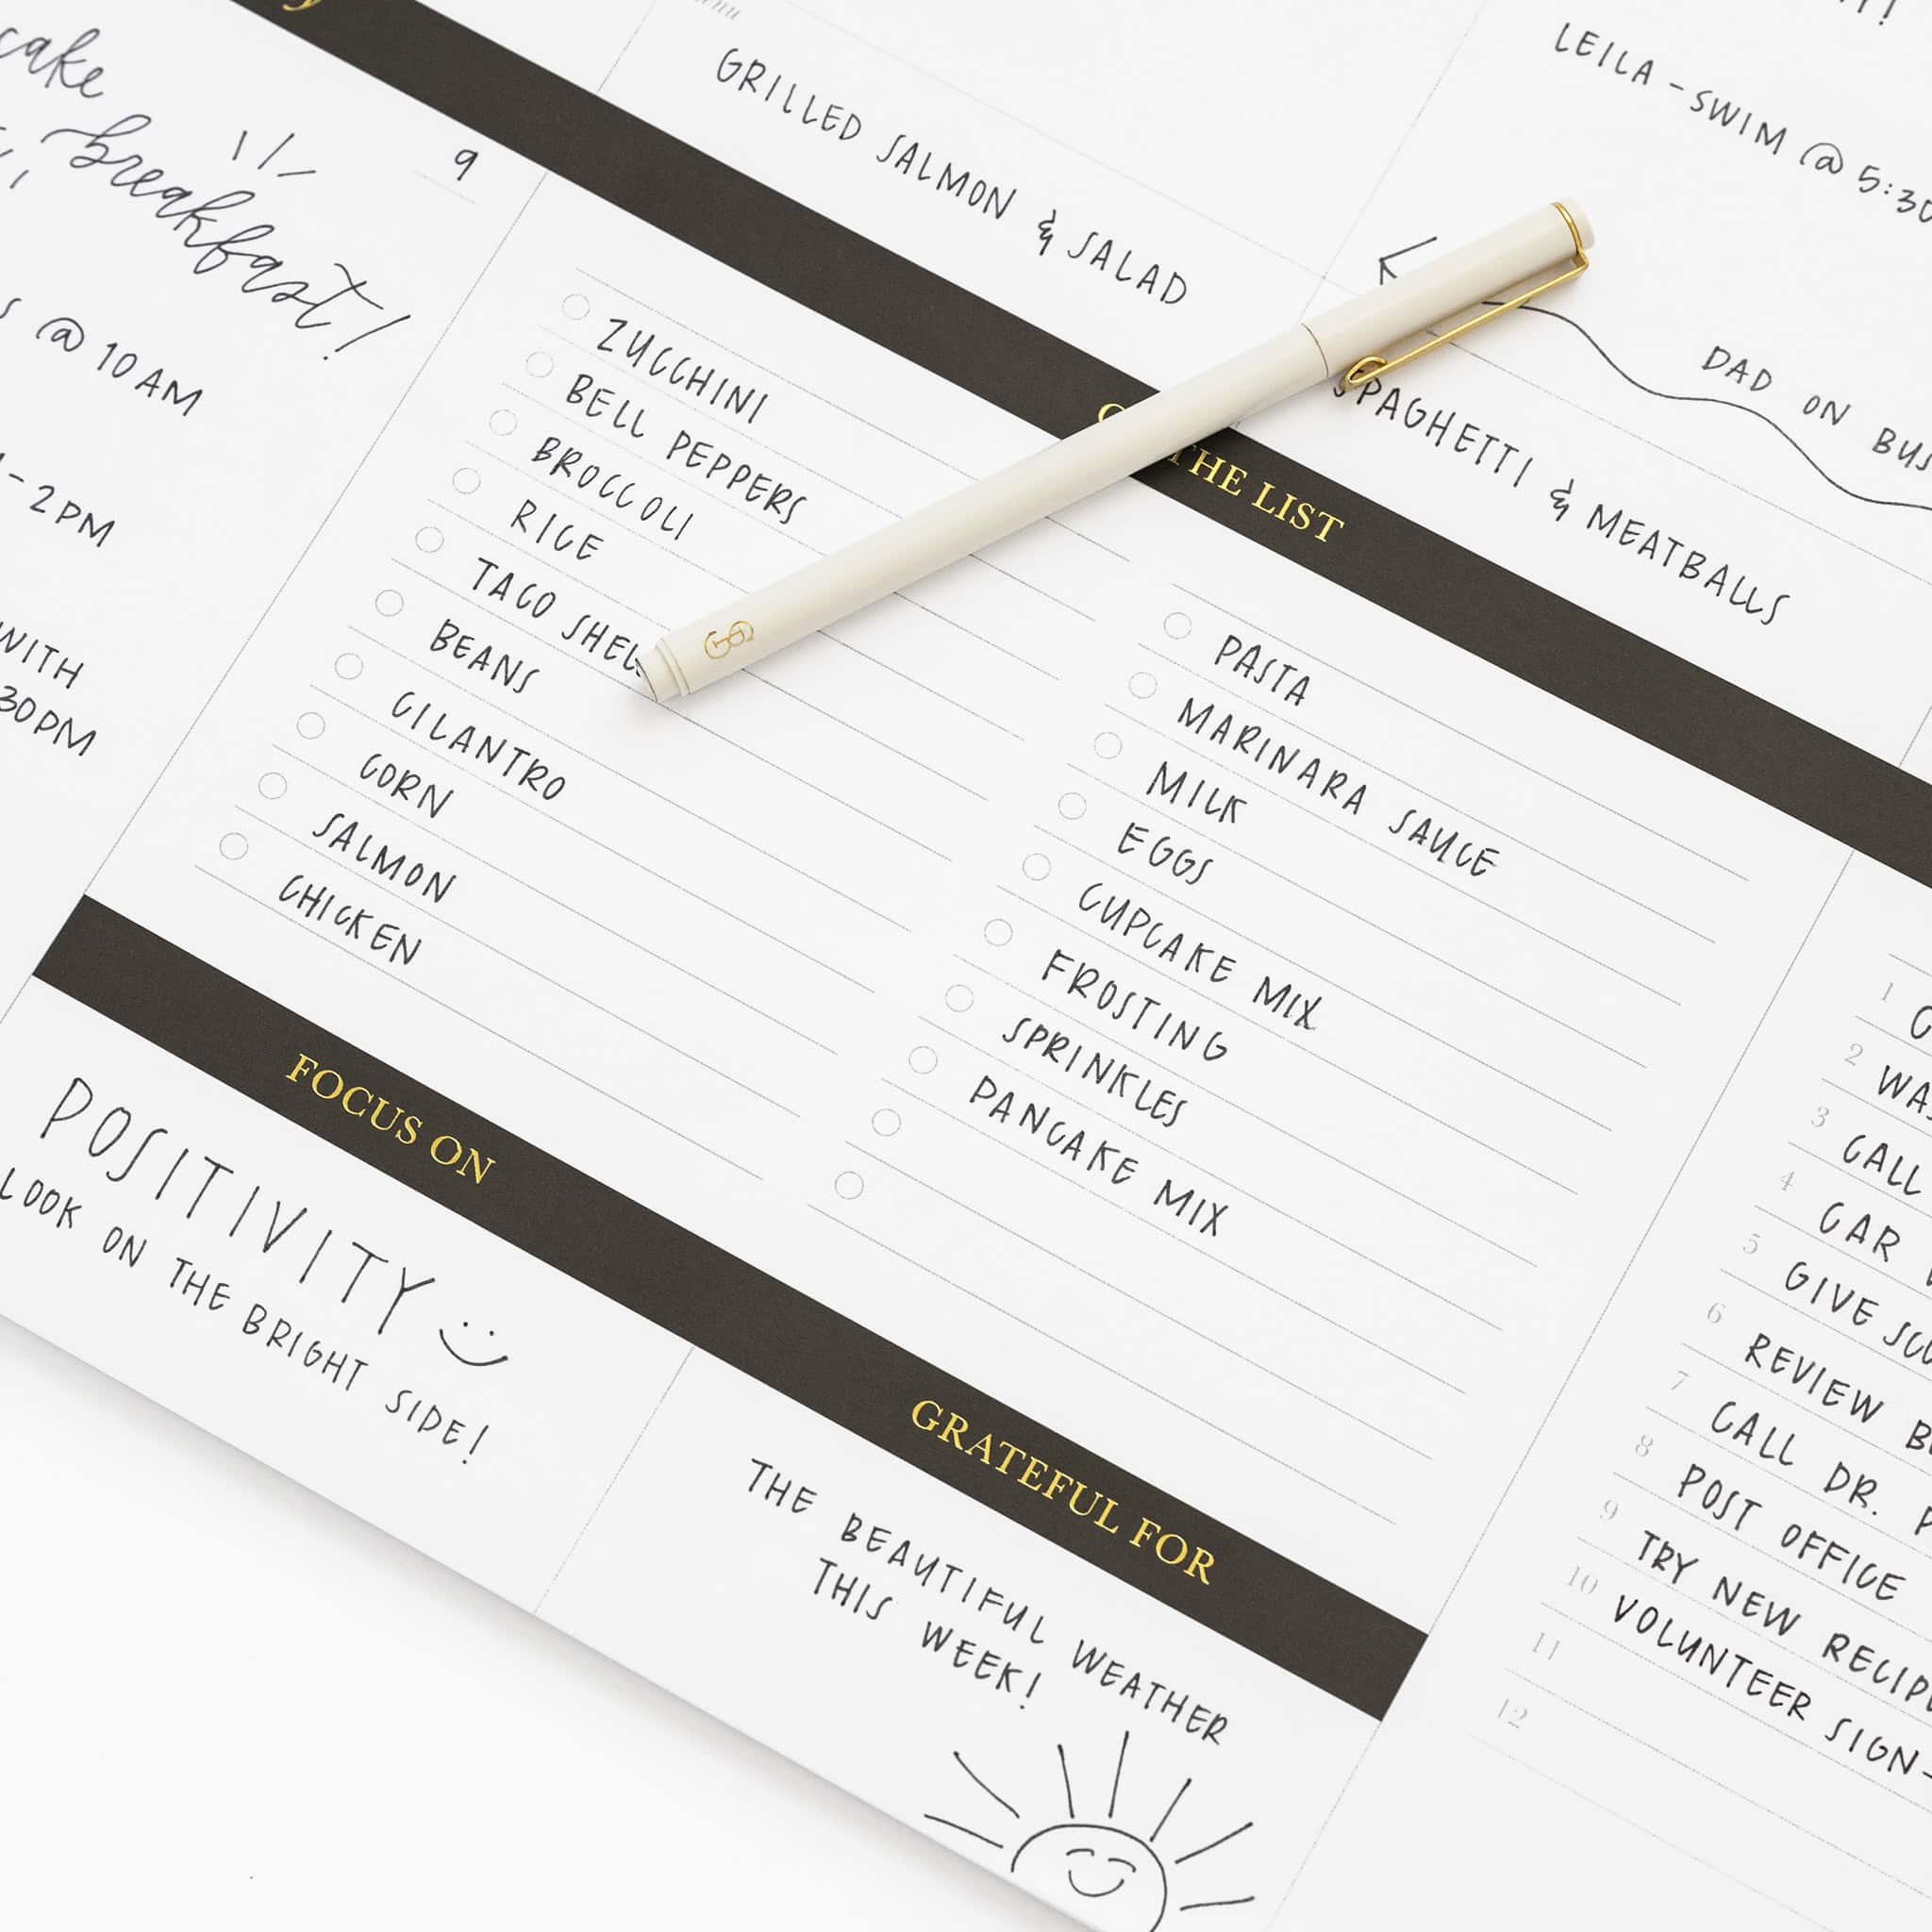 cake
breakfast!
9
@ 10 AM
- 2 PM
WITH
30PM
GRILLED SALMON & SALAD
LEILA - SWIM @ 5:30
DAD ON BUS
SPAGHETTI & MEATBALLS
THE LIST
ZUCCHINI
BELL PEPPERS
BROCCOLI
RICE
TACO SHEL
BEANS
CILANTRO
CORN
SALMON
CHICKEN
PASTA
MARINARA SAUCE
MILK
EGGS
CUPCAKE MIX
FROSTING
SPRINKLES
PANCAKE MIX
FOCUS ON
POSITIVITY
LOOK ON THE BRIGHT SIDE!
GRATEFUL FOR
THE BEAUTIFUL WEATHER
THIS WEEK!
1
2 WA
3 CALL
4 CAR
5 GIVE
6 REVIEW
7 CALL DR.
8 POST OFFICE
9 TRY NEW RECIP
10 VOLUNTEER SIGN-
11
12